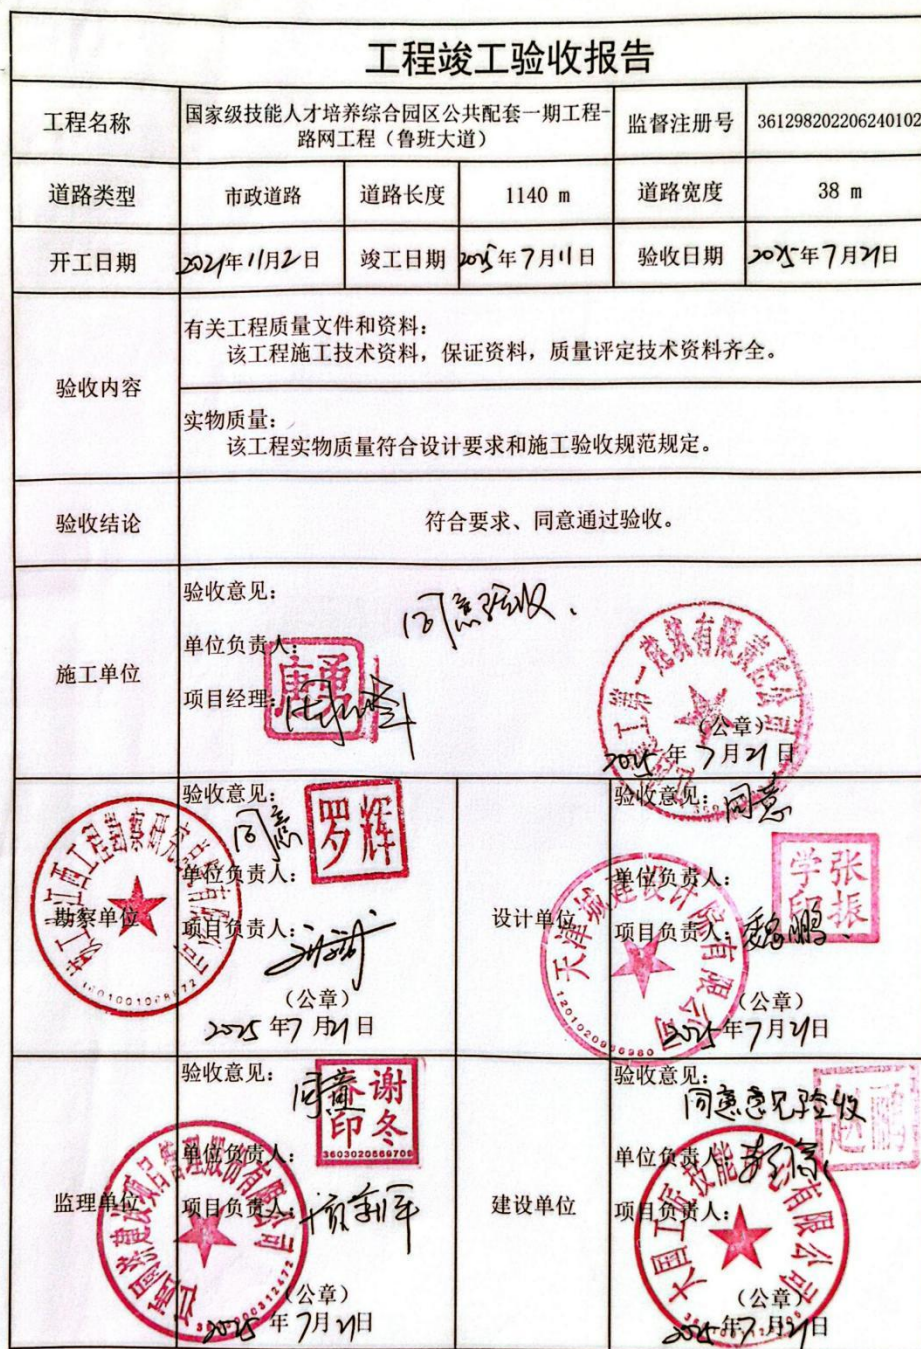 工程竣工验收报告
工程名称
国家级技能人才培养综合园区公共配套一期工程-
路网工程（鲁班大道）
监督注册号
361298202206240102
道路类型
市政道路
道路长度
1140 m
道路宽度
38 m
开工日期
2021年11月2日
竣工日期
2025年7月11日
验收日期
2025年7月21日
验收内容
有关工程质量文件和资料：
该工程施工技术资料，保证资料，质量评定技术资料齐全。
实物质量：
该工程实物质量符合设计要求和施工验收规范规定。
验收结论
符合要求、同意通过验收。
施工单位
验收意见：
同意验收.
单位负责人：
唐勇
项目经理：
工第一建筑有限责任公司
（公章）
2025年7月21日
勘察单位
验收意见：
同意
罗辉
单位负责人：
江西工程勘察研究总院有限公司
项目负责人：
（公章）
2025年7月21日
设计单位
验收意见：
同意
单位负责人：
张振学印
项目负责人：
魏鹏
天津城建设计院有限公司
（公章）
2025年7月21日
监理单位
验收意见：
同意
谢冬春印
3603020569708
单位负责人：
项目负责人：
建设项目管理股份有限公司
（公章）
2025年7月21日
建设单位
验收意见：
同意意见验收
赵鹏
单位负责人：
项目负责人：
大国工匠技能有限公司
（公章）
2025年7月21日